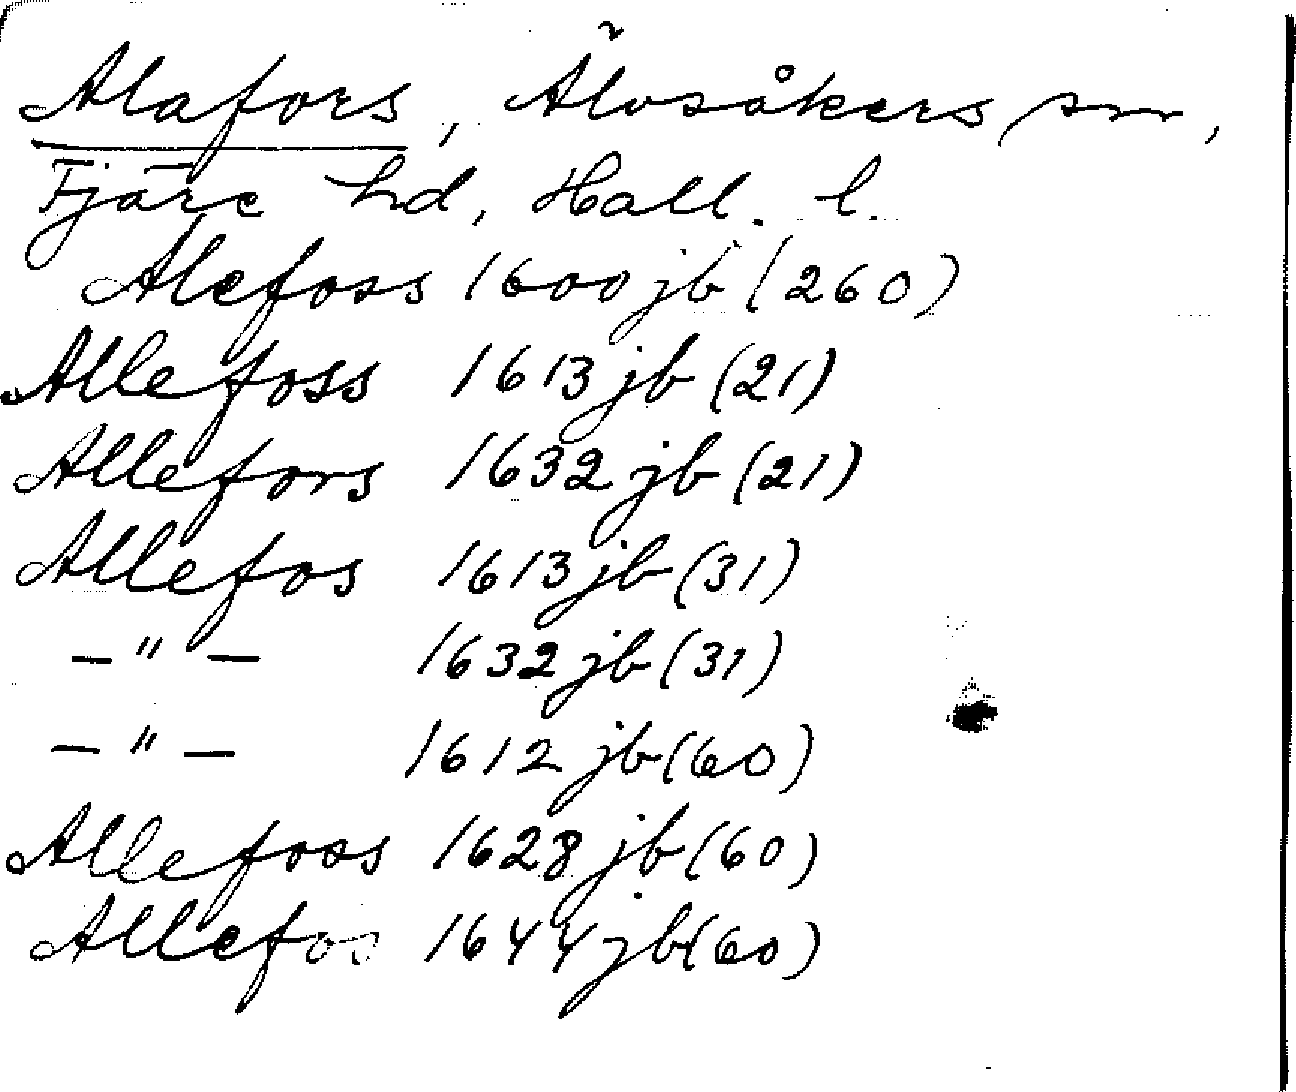 Alafors, Älvsåkers sn,
Fjäre hd, Hall. l.
Alefoss 1600 jb (260)
Allefoss 1613 jb (21)
Allefors 1632 jb (21)
Allefos 1613 jb (31)
—"— 1632 jb (31)
—"— 1612 jb (60)
Allefoss 1628 jb (60)
Allefos 1644 jb (60)